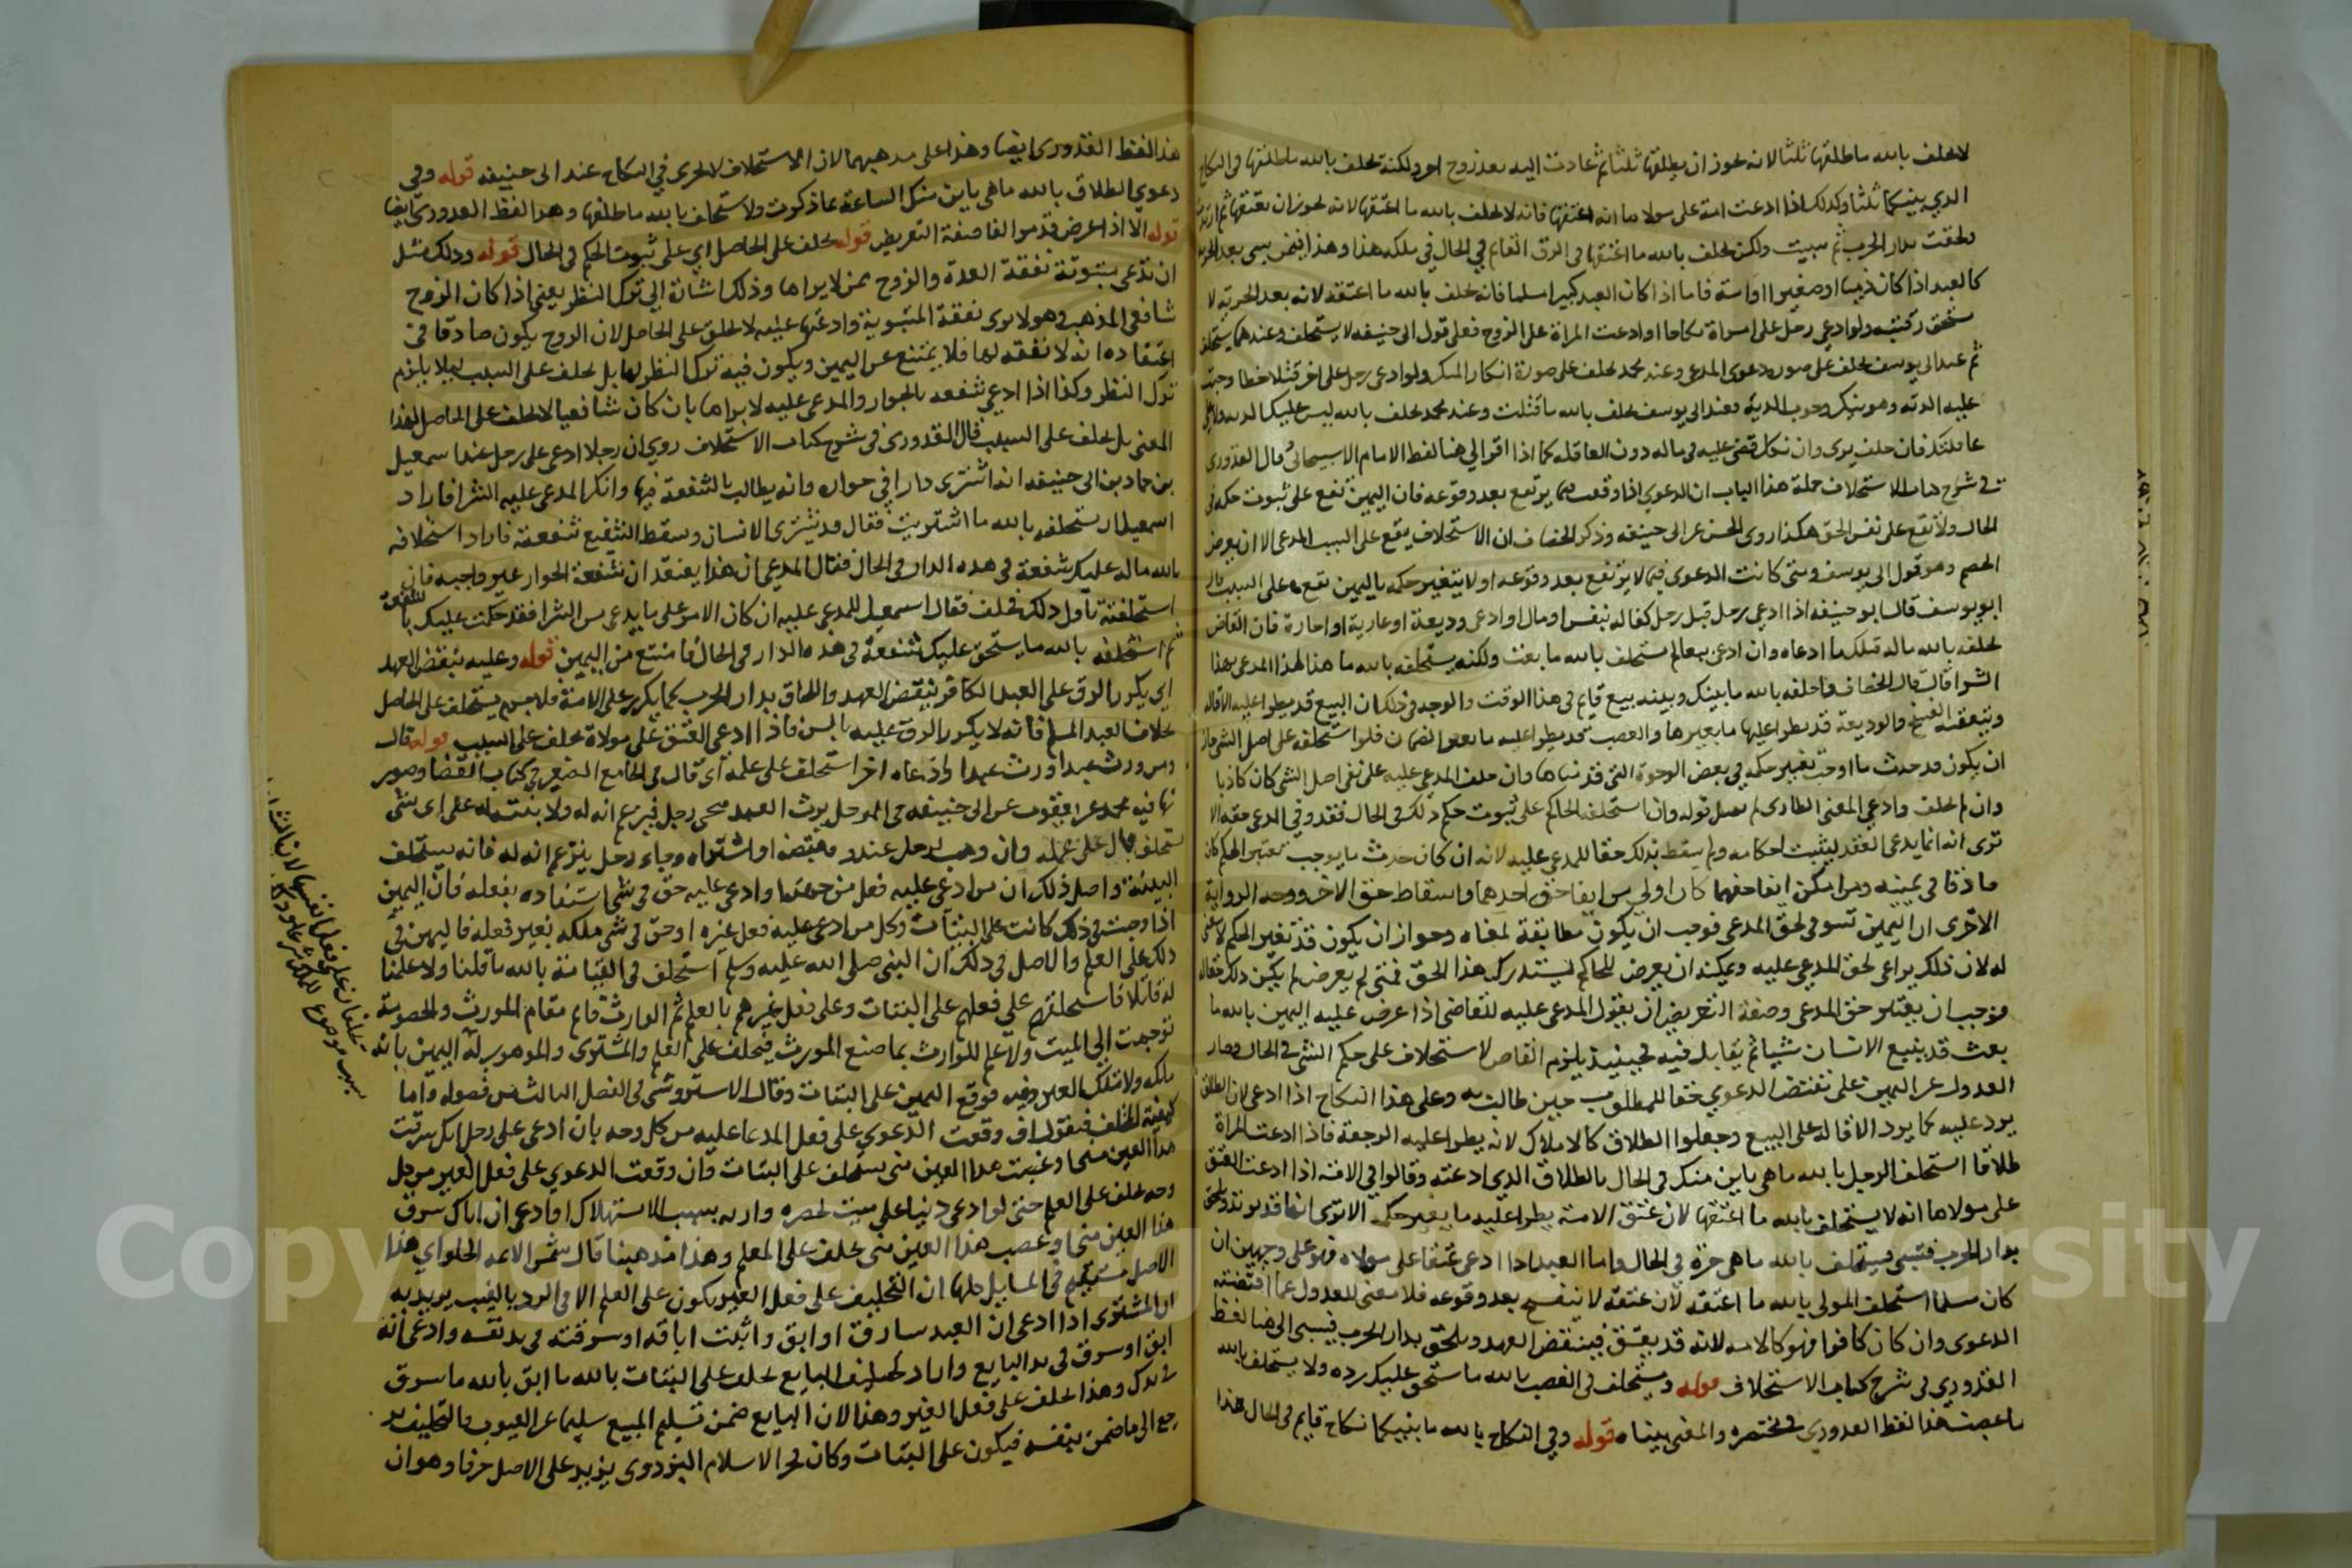 لا يحلف بالله ما طلقها ثلثا لانه يجوز ان يطلقها ثلثا ثم عادت اليه بعد زوج اخر ولكنه يحلف بالله ما طلقتها في النكاح
الذي بينكما ثلثا وكذلك اذا ادعت امة على مولاها انه اعتقها فانه لا يحلف بالله ما اعتقها لانه يجوز ان يعتقها ثم ارتدت
ولحقت بدار الحرب ثم سبيت ولكن يحلف بالله ما اعتقها في الرق القايم في الحال في ملكه هذا وهذا فيمن يسبى بعد الحرية
كالعبد اذا كان ذميا او صغيرا او امة فاما اذا كان العبد كبيرا مسلما فانه يحلف بالله ما اعتقه لانه بعد الحرية لا
ولو ادعى رجل على امراة نكاحا او ادعت المراة على الزوج فعلى قول ابي حنيفه لا يستحلف وعندهما يستحلف
ثم عند ابي يوسف يحلف على صورة دعوى المدعي وعند محمد يحلف على صورة انكار المنكر ولو ادعى رجل على اخر قتلا خطا وجب
عليه الدية وهو ينكر وجوب الدية فعند ابي يوسف يحلف بالله ما قتلت وعند محمد يحلف بالله ليس عليك الدية ولا على
عاقلتك فان حلف يرى وان نكل قضي عليه في ماله دون العاقلة كما اذا اقر الى هنا لفظ الامام الاسبيجابي قال القدوري
في شرح كتاب الاستحلاف جملة هذا الباب ان الدعوي اذا وقعت فيما يرتفع بعد وقوعه فان اليمين تقع على ثبوت حكمه في
الحال ولا تقع على نفس الحق هكذا روى الحسن عن ابي حنيفه وذكر الخصاف ان الاستحلاف يقع على السبب المدعى الا ان يعرض
الخصم وهو قول ابي يوسف ومتى كانت الدعوي فيما لا يرتفع بعد وقوعه او لا يتغير حكمه باليمين تقع على السبب قال
ابو يوسف قال ابو حنيفه اذا ادعى رجل قبل رجل كفاله بنفس او مال او ادعى وديعة او عارية او اجارة فان القاضي
يحلفه بالله ماله قبلك ما ادعاه وان ادعى بيعا لم يستحلف بالله ما بعت ولكنه يستحلفه بالله ما هذا لهذا المدعى بهذا
الشرا قال قال الخصاف واحلفه بالله ما بينك وبينه بيع قايم في هذا الوقت والوجه في ذلك ان البيع قد يطرا عليه الاقاله
ان يكون قد حدث ما اوجب تغيير حكمه في بعض الوجوه التي قد بيناها وان حلف المدعى عليه على نفي اصل الشي كان كاذبا
وان لم يحلف وادعى المعنى الطاري لم يقبل قوله وان استحلفه الحاكم على ثبوت حكم ذلك في الحال فقد وفي المدعي حقه الا
ترى انه انما يدعي العقد ليثبت احكامه ولم يسقط بذلك حقا للمدعى عليه لانه ان كان حدث ما يوجب تغيير الحكم كان
صادقا في يمينه ومن امكن ايفا حقهما كان اولى من ايفا حق احدهما واسقاط حق الاخر ووجه الرواية
الاخرى ان اليمين تستوفى لحق المدعي فوجب ان يكون مطابقة لمعناه وجواز ان يكون قد تغير الحكم
له لان ذلك يراعى لحق المدعي عليه ويمكنه ان يعرض للحاكم ليستدرك هذا الحق فمتى لم يعرض لم يكن ذلك حقا له
فوجب ان يعتبر حق المدعي وصفة التعريض ان يقول المدعى عليه للقاضي اذا عرض عليه اليمين بالله ما
بعت قد يبيع الانسان شيا ثم يقابل فيه فحينيذ يلزم القاضي الاستحلاف على حكم الشي في الحال وصار
العدول عن اليمين على مقتضى الدعوي حقا للمطلوب حين طالب به وعلى هذا النكاح اذا ادعى لان الطلاق
يرد عليه كما يرد الاقاله على البيع وجعلوا الطلاق كالاملاك لانه يطرا عليه الرجعة فاذا ادعت المراة
طلاقا استحلف الرجل بالله ما هي باين منك في الحال بالطلاق الذي ادعته وقالوا في الامة اذا ادعت العتق
على مولاها انه لا يستحلف بالله ما اعتقها لان عتق الامة يطرا عليه ما يغير حكمه الا ترى انها قد ترتد وتلحق
بدار الحرب فتسبى فيستحلف بالله ما هي حرة في الحال واما العبد اذا ادعى عتقا على مولاه فهو على وجهين ان
كان مسلما استحلف المولى بالله ما اعتقه لان عتقه لا ينفسخ بعد وقوعه فلا معنى للعدول عما اقتضته
الدعوى وان كان كافرا فهو كالامة لانه قد يعتق فينقض العهد ويلحق بدار الحرب فيسبى الى هنا لفظ
القدوري في شرح كتاب الاستحلاف قوله ويستحلف في الغصب بالله ما يستحق عليك رده ولا يستحلف بالله
ما غصبت هذا لفظ القدوري في مختصره والمعنى بيناه قوله وفي النكاح بالله ما بينكما نكاح قايم في الحال هذا
هذا لفظ القدوري ايضا وهذا على مذهبهما لان الاستحلاف لا يجري في النكاح عند ابي حنيفه قوله وفي
دعوي الطلاق بالله ما هي باين منك الساعة بما ذكرت ولا يستحلف بالله ما طلقها وهذا لفظ القدوري ايضا
قوله الا اذا عرض قد مر الفا صفة التعريض قوله يحلف على الحاصل اي على ثبوت الحكم في الحال قوله وذلك مثل
ان تدعي مبتوتة نفقة العدة والزوج ممن لا يراها وذلك اشارة الى ترك النظر يعني اذا كان الزوج
شافعي المذهب وهو لا يرى نفقة المبتوتة وادعتها عليه لا يحلف على الحاصل لان الزوج يكون صادقا في
اعتقاده انه لا نفقه لها فلا يمتنع عن اليمين ويكون فيه ترك النظر لها بل يحلف على السبب ليلا يلزم
ترك النظر وكذا اذا ادعي شفعه بالجوار والمدعى عليه لا يراها بان كان شافعيا لا يحلف على الحاصل لهذا
المعنى بل يحلف على السبب قال القدوري في شرح كتاب الاستحلاف روي ان رجلا ادعى على رجل عند اسمعيل
بن حماد بن ابي حنيفه انه اشترى دارا في جواره وانه يطالب بالشفعة فيها وانكر المدعى عليه الشرا فاراد
اسمعيل ان يستحلفه بالله ما اشتريت فقال قد يشتري الانسان ويسقط الشفيع شفعته فاراد استحلافه
بالله ماله عليك شفعة في هذه الدار في الحال فقال المدعي ان هذا يعتقد ان شفعة الجوار غير واجبه فان
استحلفته تاول ذلك فحلف فقال اسمعيل للمدعى عليه ان كان الامر على ما يدعي من الشرا فقد حكمت عليك بالشفعة
ثم استحلفه بالله ما يستحق عليك شفعة في هذه الدار في الحال فامتنع من اليمين قوله وعليه ينقض العهد
اي يكرر الرق على العبد الكافر بنقض العهد واللحاق بدار الحرب كما يكرر على الامة فلا جرم يستحلف على الحاصل
بخلاف العبد المسلم فانه لا يكرر الرق عليه فاذا ادعى العتق على مولاه يحلف على السبب قوله قال
ومن ورث عبدا وادعاه اخر استحلف على علمه اي قال في الجامع الصغير في كتاب القضا وصور
تها فيه محمد عن يعقوب عن ابي حنيفه في الرجل يرث العبد فيجي رجل فيزعم انه له ولا بينة له على اي شي
يستحلف قال على علمه وان وهب لرجل عبد وقبضه او اشتراه وجاء رجل يزعم انه له فانه يستحلف
البتة واصل ذلك ان من ادعي عليه فعل من جهته او ادعي عليه حق في شي استفاده بفعله فان اليمين
اذا وجبت في ذلك كانت على البتات وكل من ادعي عليه فعل غيره او حق في شي ملكه بغير فعله فاليمين في
ذلك على العلم والاصل في ذلك ان النبي صلى الله عليه وسلم استحلف في القسامة بالله ما قتلنا ولا علمنا
له قاتلا فاستحلفهم على فعلهم على البتات وعلى فعل غيرهم بالعلم ثم الوارث قايم مقام المورث والخصومة
توجهت الى الميت ولا علم للوارث بما صنع المورث فيحلف على العلم والمشتري والموهوب له اليمين بانه
فوقع اليمين على البتات وقال الاستروشني في الفصل الثالث من فصوله واما
كيفية التحليف فنقول ان وقعت الدعوي على فعل المدعا عليه من كل وجه بان ادعى على رجل انك سرقت
هذا العين مني او غصبت هذا العين مني يستحلف على البتات وان وقعت الدعوي على فعل الغير من كل
وجه يحلف على العلم حتى لو ادعى دينا على ميت بحضرة وارثه بسبب الاستهلاك او ادعى ان اباك سرق
هذا العين مني او غصب هذا العين مني يحلف على العلم وهذا مذهبنا قال شمس الايمه الحلواي هذا
الاصل مستقيم في المسايل كلها ان التحليف على فعل الغير يكون على العلم الا في الرد بالعيب يريد به
ان المشتري اذا ادعى ان العبد سارق او ابق واثبت اباقه او سرقته في يد نفسه وادعى انه
ابق او سرق في يد البايع واراد تحليف البايع يحلف على البتات بالله ما ابق بالله ما سرق
في يدك وهذا تحليف على فعل الغير وهذا لان البايع ضمن تسليم المبيع سليما عن العيوب فالتحليف
رجع الى ما ضمن بنفسه فيكون على البتات وكان فخر الاسلام البزدوي يزيد على الاصل حرفا وهو ان